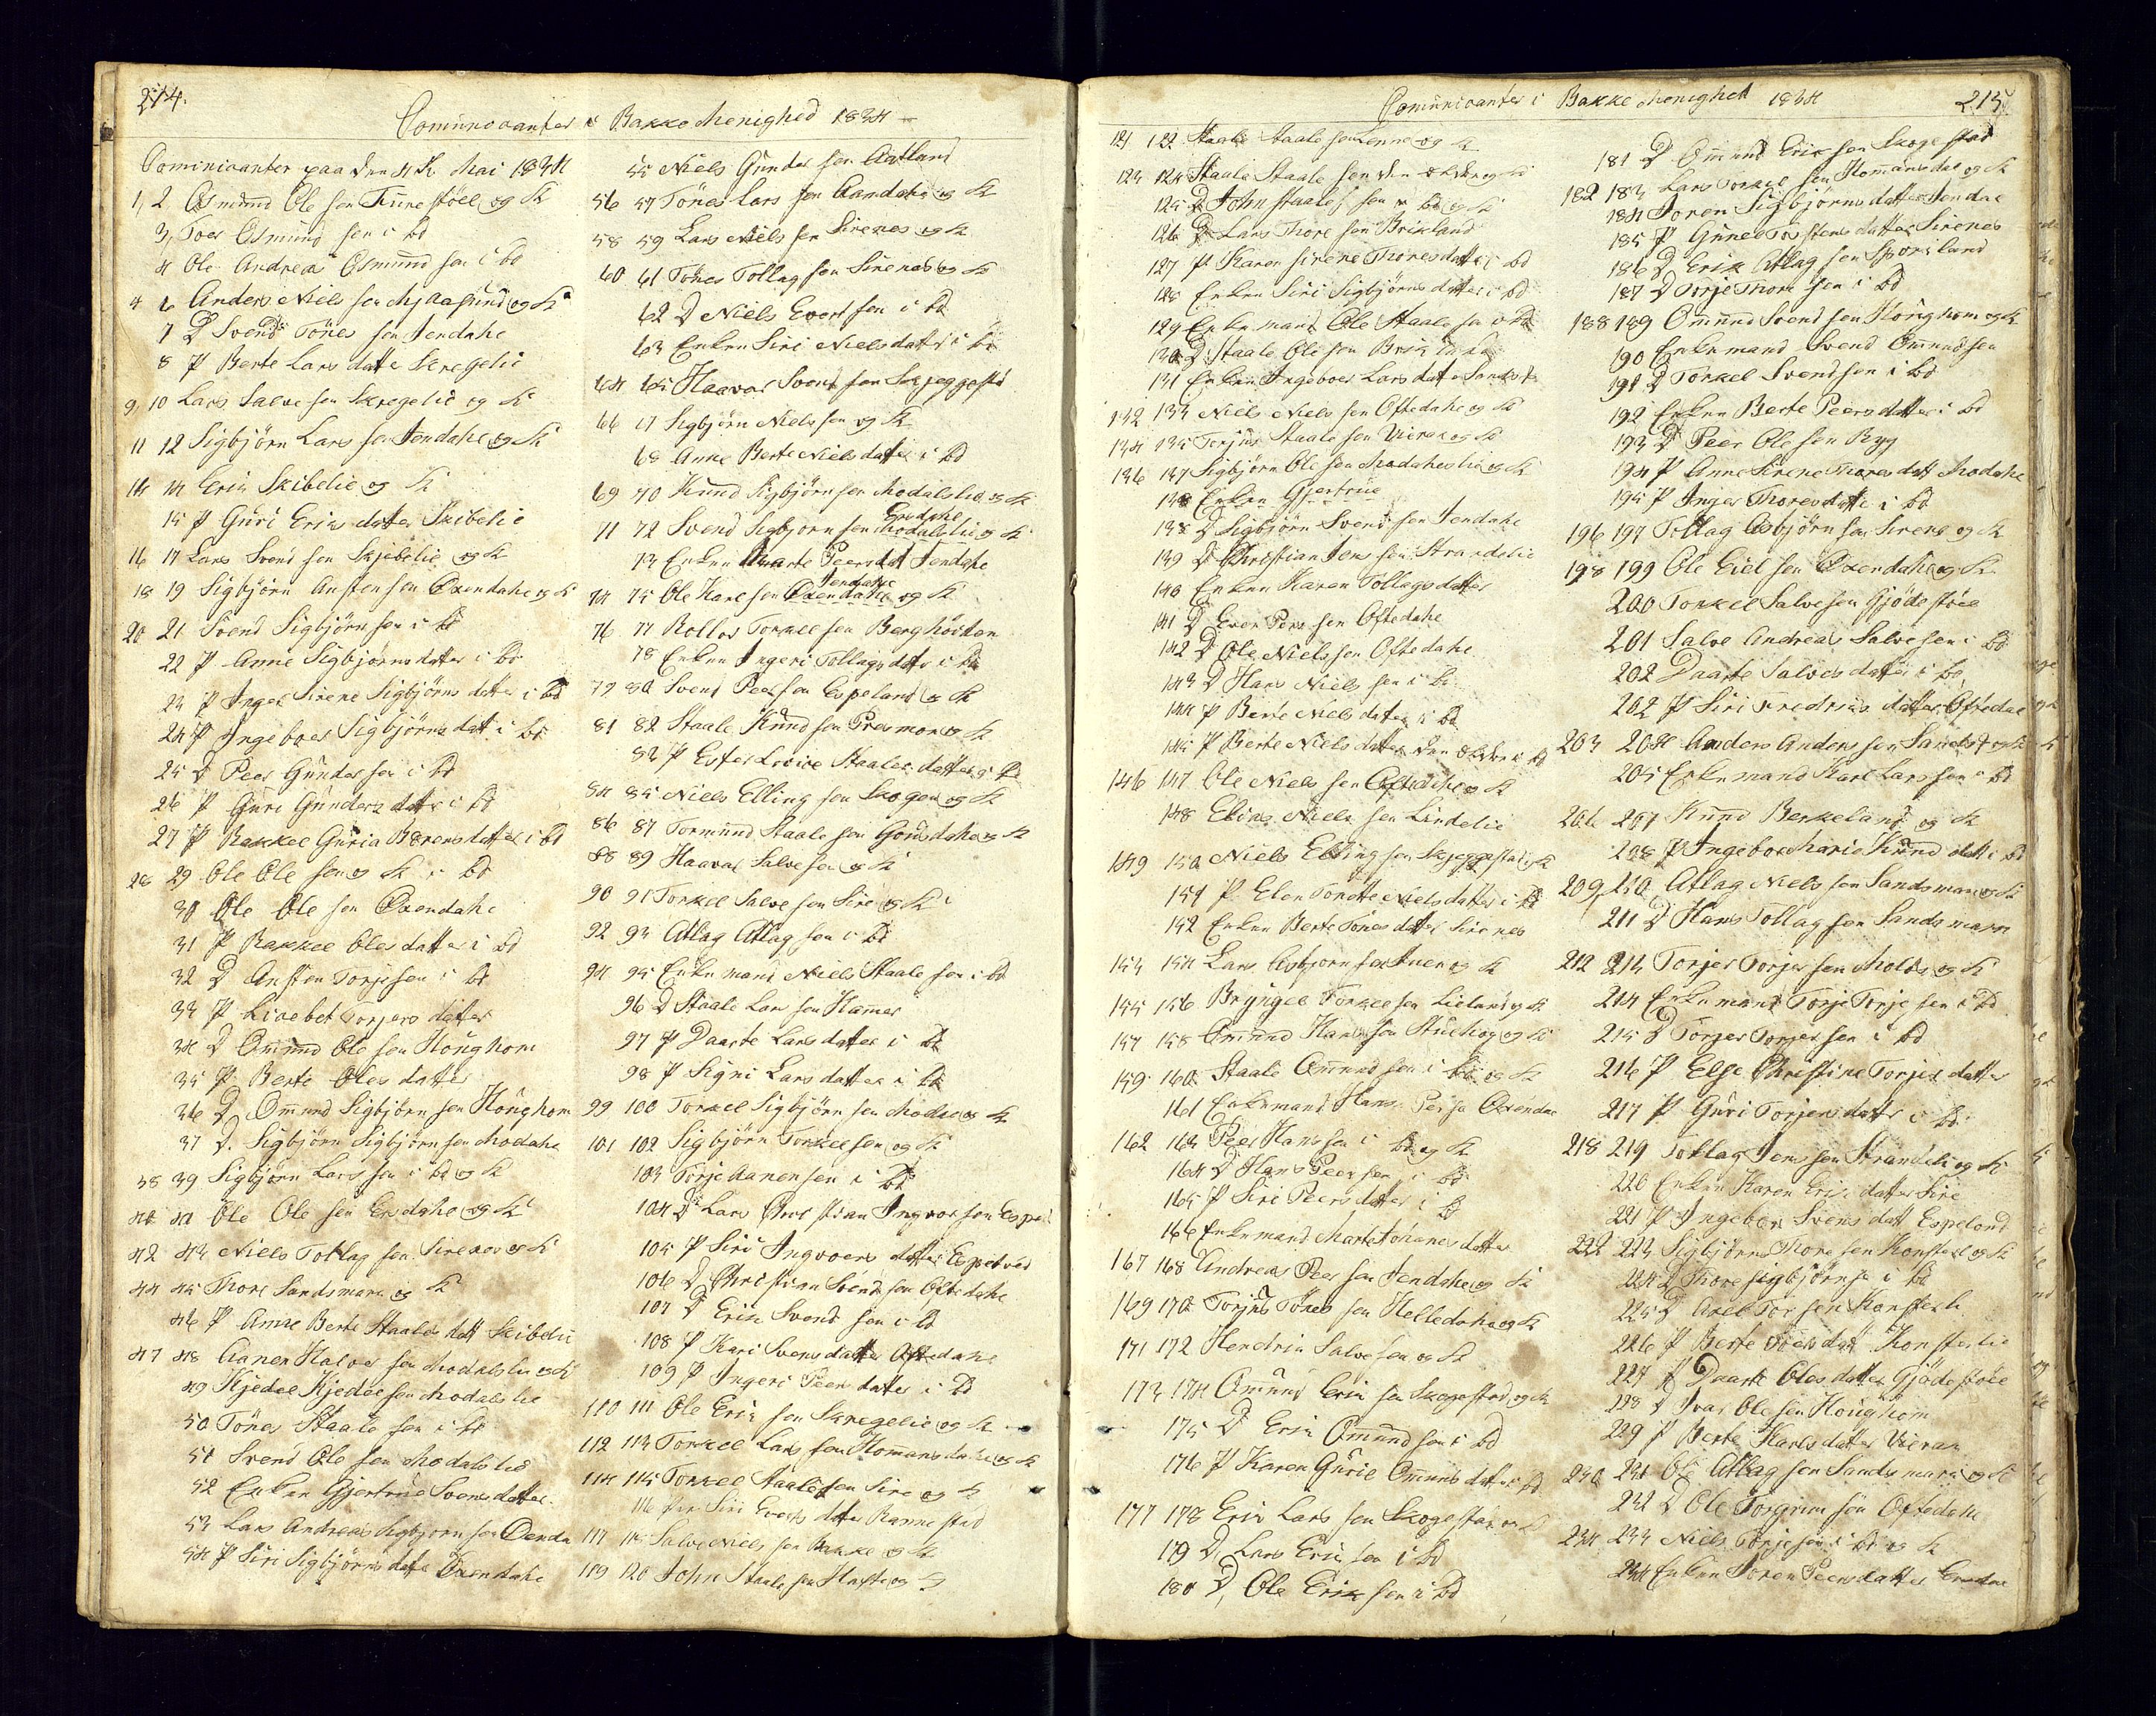 214.
Comunicanter i Bakke Menighed 1834
Cominicanter paa den 4 Mai 1834
1, 2 Asmund Ole sen Tunestöll og K
3, Toer Osmund sen i bd
4 Ole Andreas Osmund sen i bd
6 Anders Niels sen og K
7 D Svend Tönes sen Jendahe
8 P Berte Lars datter Skregelie
9, 10 Lars Salve sen Skregelie og K
11 12 Sigbjörn Lars sen Jendahe og K
14 Erik Skibelie og K
15 P Guri Eriks datter Skibelie
16 17 Lars Svend sen Skjebelie og K
18 19 Sigbjörn Austen sen Oxendahe og K
20 21 Svend Sigbjörn sen i bd
22 P Anne Sigbjörns datter i bd
23 P Inger Sirene Sigbjörns datter i bd
24 P Ingeboer Sigbjörns datt i bd
25 D Peer Gunder sen i bd
26 P Guri Gunders datter i bd
27 P Rakkel Guria Bærens datter i bd
28 29 Ole Ole sen og K i bd
30 Ole Ole sen Oxendahe
31 P Rakkel Oles datter i bd
32 D Austen Torje sen i bd
33 P Lisebet Torjers datter
34 D Omund Ole sen Houghom
35 P Berte Oles datter
36 D Omund Sigbjörn sen Houghom
37 D. Sigbjörn Sigbjörn sen Modahe
38 39 Sigbjörn Lars sen i bd og K
40 41 Ole Ole sen Ersdahe og K
42 43 Niels Tollag sen Sirenes og K
44 45 Thore Sandsmark og K
46 P Anne Berte Staales datt Skibelie
47 48 Aanen Halvor sen Modalslie og K
49 Kjedel Kjedel sen Modalslie
50 Tönes Staale sen i bd
51 Svend Ole sen Modalslie
52 Enken Gjertrue Svensdatter
53 Lars Andreas Sigbjörn sen Oxenda
54 P Siri Sigbjörns datter Oxendahe
55 Niels Gunder sen Aatland
56 57 Tönes Lars sen Aamdahe og K
58 59 Lars Niels sen Sirenes og K
60 61 Tönes Tollag sen Sirenes og K
62 D Niels Evert sen i bd
63 Enken Siri Nielsdatter i bd
64 65 Haavar Svend sen Skjeggestd
66 67 Sigbjörn Niels sen og K
68 Anne Berte Niels datter i bd
69 70 Knud Sigbjörn sen Modalslie og K
Ersdahe
71 72 Svend Sigbjörn sen Modalslie og K
73 Enken Marte Peersdat Jendahe
Jendahe
74 75 Ole Karl sen Oxendahe og K
76 77 Rollos Torkel sen Berghövten
78 Enken Ingeri Tollags datter i bd
79 80 Svend Peer sen Espeland og K
81 82 Staale Knud sen Presmon og K
83 P Ester Lovise Staales datter i bd
84 85 Niels Elling sen Skogen og K
86 87 Tormund Staale sen Gousdahe og K
88 89 Haavar Salve sen og K
90 91 Torkel Salve sen Sire og K
92 93 Atlag Atlag sen i bd
94 95 Enkemand Niels Staale sen i bd
96 D Staale Lars sen Hamer
97 P Daarte Lars datter i bd
98 P Signi Lars datter i bd
99 100 Torkel Sigbjörn sen og K
101 102 Sigbjörn Torkel sen og K
103 Torje Aanen sen i bd
104 D Lars Christian Ingvor sen
105 P Siri Ingvoers datter
106 D Christian Svend sen Oftedahe
107 D Erik Svend sen i bd
108 P Kari Svens datter Oftedahe
109 P Ingeri Peers datter i bd
110 111 Ole Erik sen Skregelie og K
112 113 Torkel Lars sen Homansdahe og K
114 115 Torkel Staale sen Sire og K
116 Siri Everts datter
117 118 Salve Niels sen Bakke og K
119 120 John Staale sen og K
Comunicanter i Bakke Menighet 1834
215
121 122 Staale Staale sen og K
123 124 Staale Staale sen den og K
125 D John Staale sen i bd og K
126 D Lars Thore sen Birkland
127 P Karen Sirene Thores datter i bd
128 Enken Siri Sigbjörns datter i bd
129 Enkemand Ole Staale sen i bd
130 D Staale Ole sen
131 Enken Ingeboer Lars datter
132 133 Niels Niels sen Oftedahe og K
134 135 Torjus Staale sen og K
136 137 Sigbjörn Ole sen Modaheslie og K
138 Enken Gjertrue
138 D Sigbjörn Svend sen Jendahe
139 D Christian Jens sen Strandelie
140 Enken Karen Tollags datter
141 D Even Peer sen Oftedahe
142 D Ole Niels sen Oftedahe
143 D Hans Niels sen i bd
144 P Berte Niels datter i bd
145 P Berte Niels datter den i bd
146 147 Ole Niels sen Oftedahe og K
148 Elias Niels sen Lindelie
149 150 Niels Elling sen Skjeggestad og K
151 P Elen Tonette Niels datter i bd
152 Enken Berte Tönes datter Sirenes
153 154 Lars Asbjorn sen og K
155 156 Bryngel Torkel sen Lieland og K
157 158 Omund Hans sen og K
159 160 Staale Omund sen i bd og K
161 Enkemand Hans Peer se Oxendae
162 163 Peer Hans sen i bd og K
164 D Hans Peer sen i bd
165 P Siri Peers datter i bd
166 Enkemand Marte Johanes datter
167 168 Andreas Peer sen Jendahe og K
169 170 Torjus Tönes sen Helledahe og K
171 172 Hendrik Salve sen og K
173 174 Omund Erik sen Skogestad og K
175 D Erik Omund sen i bd
176 P Karen Gurie Omunds datter i bd
177 178 Erik Lars sen Skogestad og K
179 D, Lars Erik sen i bd
180 D, Ole Erik sen i bd
181 D Omund Erik sen Skogestad
182 183 Lars Torkel sen Homansdal og K
184 Soren Sigbjörns datter Jendal
185 P Gunel Torstens datter Sirenes
186 D Erik Atlag sen
187 D Torje Thore sen i bd
188 189 Omund Svend sen Houghom og K
190 Enkemand Svend Omundsen
191 D Torkel Svendsen i bd
192 Enken Berte Peers datter i bd
193 D Peer Ole sen Ryg
194 P Anne Sirene Thores datt Modahe
195 P Inger Thores datter i bd
196 197 Tollag Asbjörn sen Sirene og K
198 199 Ole Eiel sen Oxendahe og K
200 Torkel Salvesen Gjödestöle
201 Salve Andreas Salvesen i bd
202 Daarte Salves datter i bd
202 P Siri Fredriks datter Oftedal
203 204 Anders Anders sen og K
205 Enkemand Karl Lars sen i bd
206 207 Knud Berkeland og K
208 P Ingeboer Marie Knud datt i bd
209, 210 Atlag Niels sen Sandsmark og K
211 D Hans Tollag sen Sandsmark
212 213 Torjer Torjer sen og K
214 Enkemand Torje Torje sen i bd
215 D Torjer Torjer sen i bd
216 P Else Christine Torjes datter
217 P Guri Torjers datter i bd
218 219 Tollag Jens sen Strandeli og K
220 Enken Karen Erik datter Sire
221 P Ingeber Svens datt Espeland
222 223 Sigbjörn Thore sen og K
224 D Thore Sigbjörn sen i bd
225 D Axel Tor sen
226 P Berte
227 P Daarte Oles datter Gjödestöle
228 D Ivar Ole sen Houghom
229 P Berte Karls datter
230 231 Ole Atlag sen Sandsmark og K
232 D Ole Torgrim sen Oftedahe
234 233 Niels Torje sen i bd og K
234 Enken Soren Peers datter